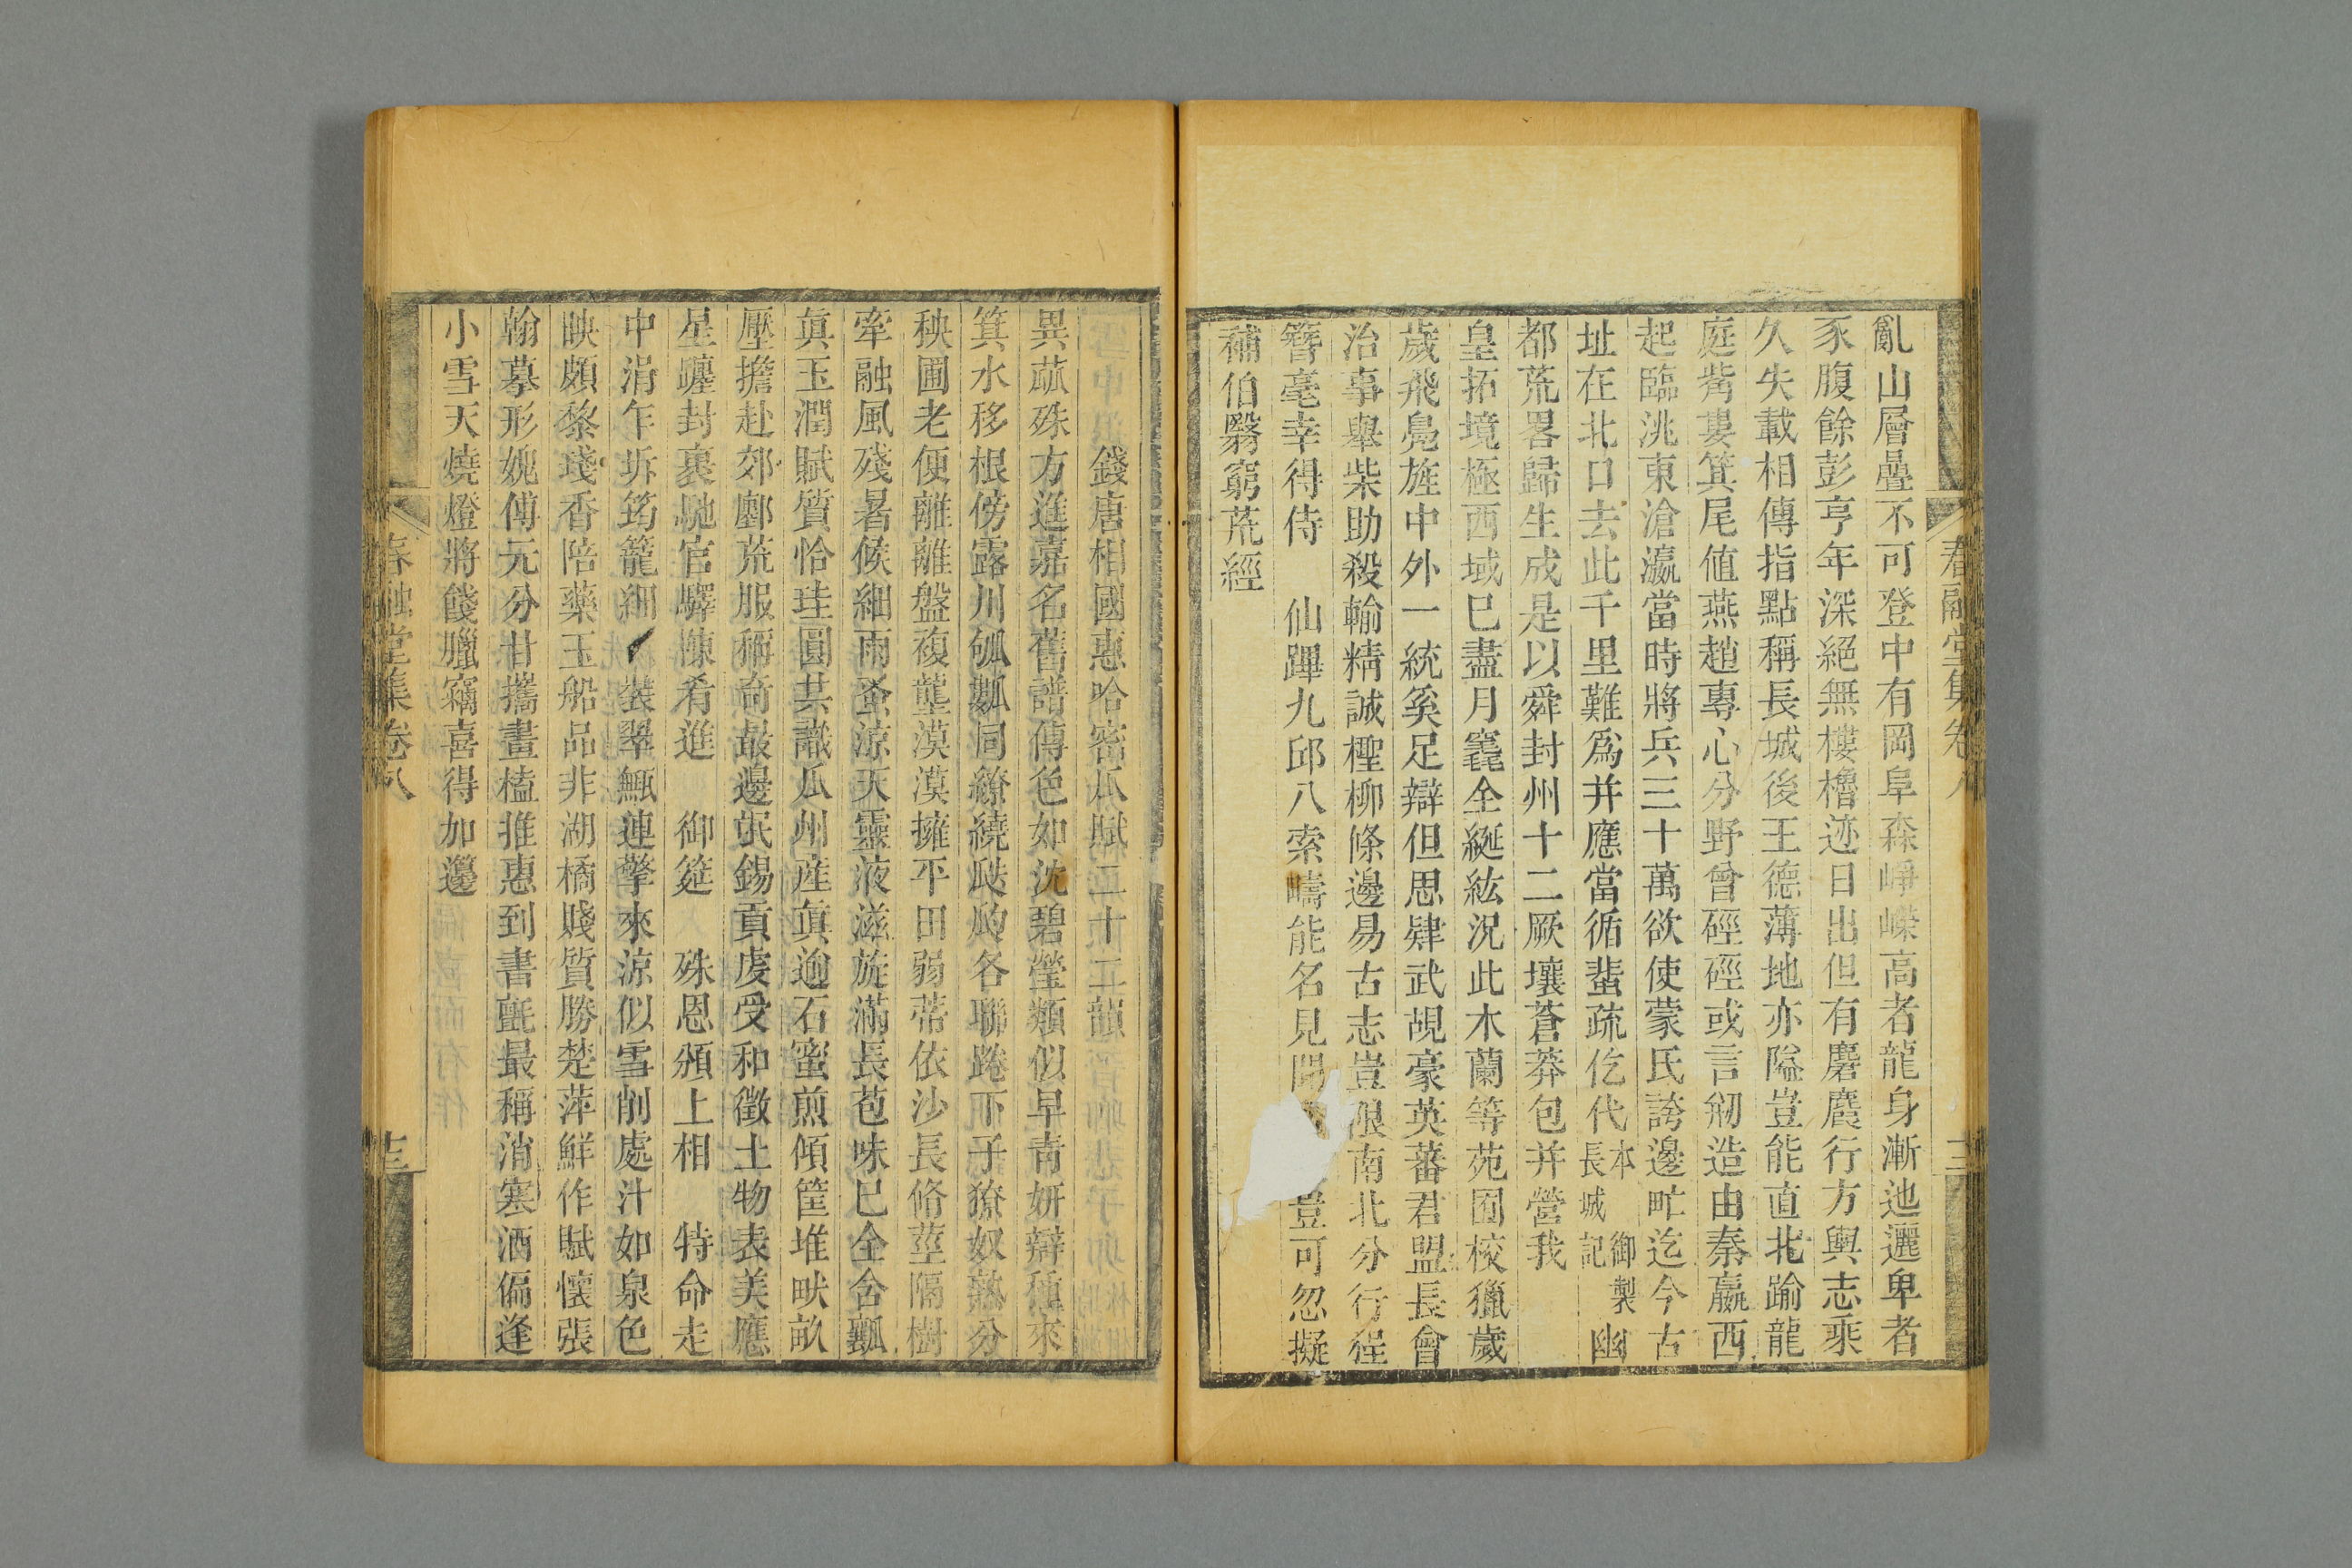 亂山層疊不可登中有岡阜森崢嶸高者龍身漸迆邐卑者
豕腹餘彭亨年深絕無樓櫓迹日出但有麏麚行方輿志乘
久失載相傳指點稱長城後王德薄地亦隘豈能直北踰龍
庭觜婁箕尾值燕趙專心分野曾硜硜或言刱造由秦嬴西
起臨洮東滄瀛當時將兵三十萬欲使蒙氏誇邊甿迄今古
址在北口去此千里難爲并應當循蜚疏仡代本 御製長城記幽
都荒畧歸生成是以舜封州十二厥壤蒼莽包并營我
皇拓境極西域已盡月竁全綖紘況此木蘭等苑囿校獵歲
歲飛鳧旌中外一統奚足辯但思肄武覘豪英蕃君盟長會
治事舉柴助殺輸精誠檉柳條邊易古志豈限南北分行程
簪毫幸得侍 仙蹕九邱八索疇能名見聞豈可忽擬
補伯翳窮荒經
春融堂集卷八
錢唐相國惠哈密瓜賦二十二韻
異蓏殊方進嘉名舊譜傳色如沈碧瑩類似早靑妍辯種來
箕水移根傍露川瓠瓤同繚繞瓞瓝各聯踡下子獠奴熟分
秧圃老便離離盤複壟漠漠擁平田弱蒂依沙長脩莖隔樹
牽融風殘暑候細雨蚤涼天靈液滋旋滿長苞味已全含瓤
眞玉潤賦質恰珪圓共識瓜州產眞逾石蜜煎傾筐堆畎畝
壓擔赴郊鄽荒服稱奇最邊氓錫貢虔受和徵土物表美應
星躔封裹馳官驛陳肴進 御筵 殊恩頒上相 特命走
中涓乍坼筠籠細裝翠觚連擎來涼似雪削處汁如泉色
映頗黎琖香陪藥玉船品非湖橋賤質勝楚萍鮮作賦懷張
翰摹形媿傅元分甘攜畫榼推惠到書氈最稱消寒酒偏逢
小雪天燒燈將餞臘竊喜得加籩
春融堂集卷八